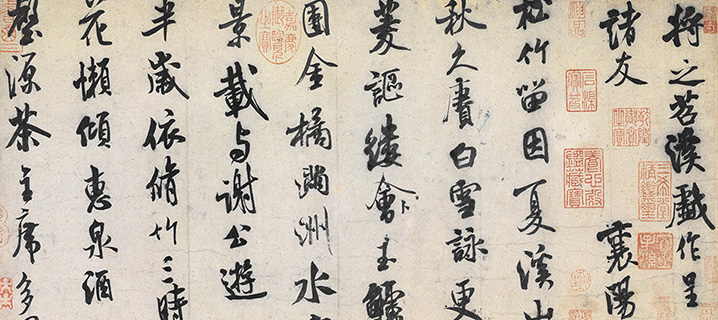 将之苕溪戲作呈
諸友 襄陽
松竹留因夏溪山
秋久賡白雪詠更
菱謳縷會玉鱸
團金橘滿洲水
景載与謝公遊
半歲依脩竹三時
花懶傾惠泉酒
壑源茶主席多